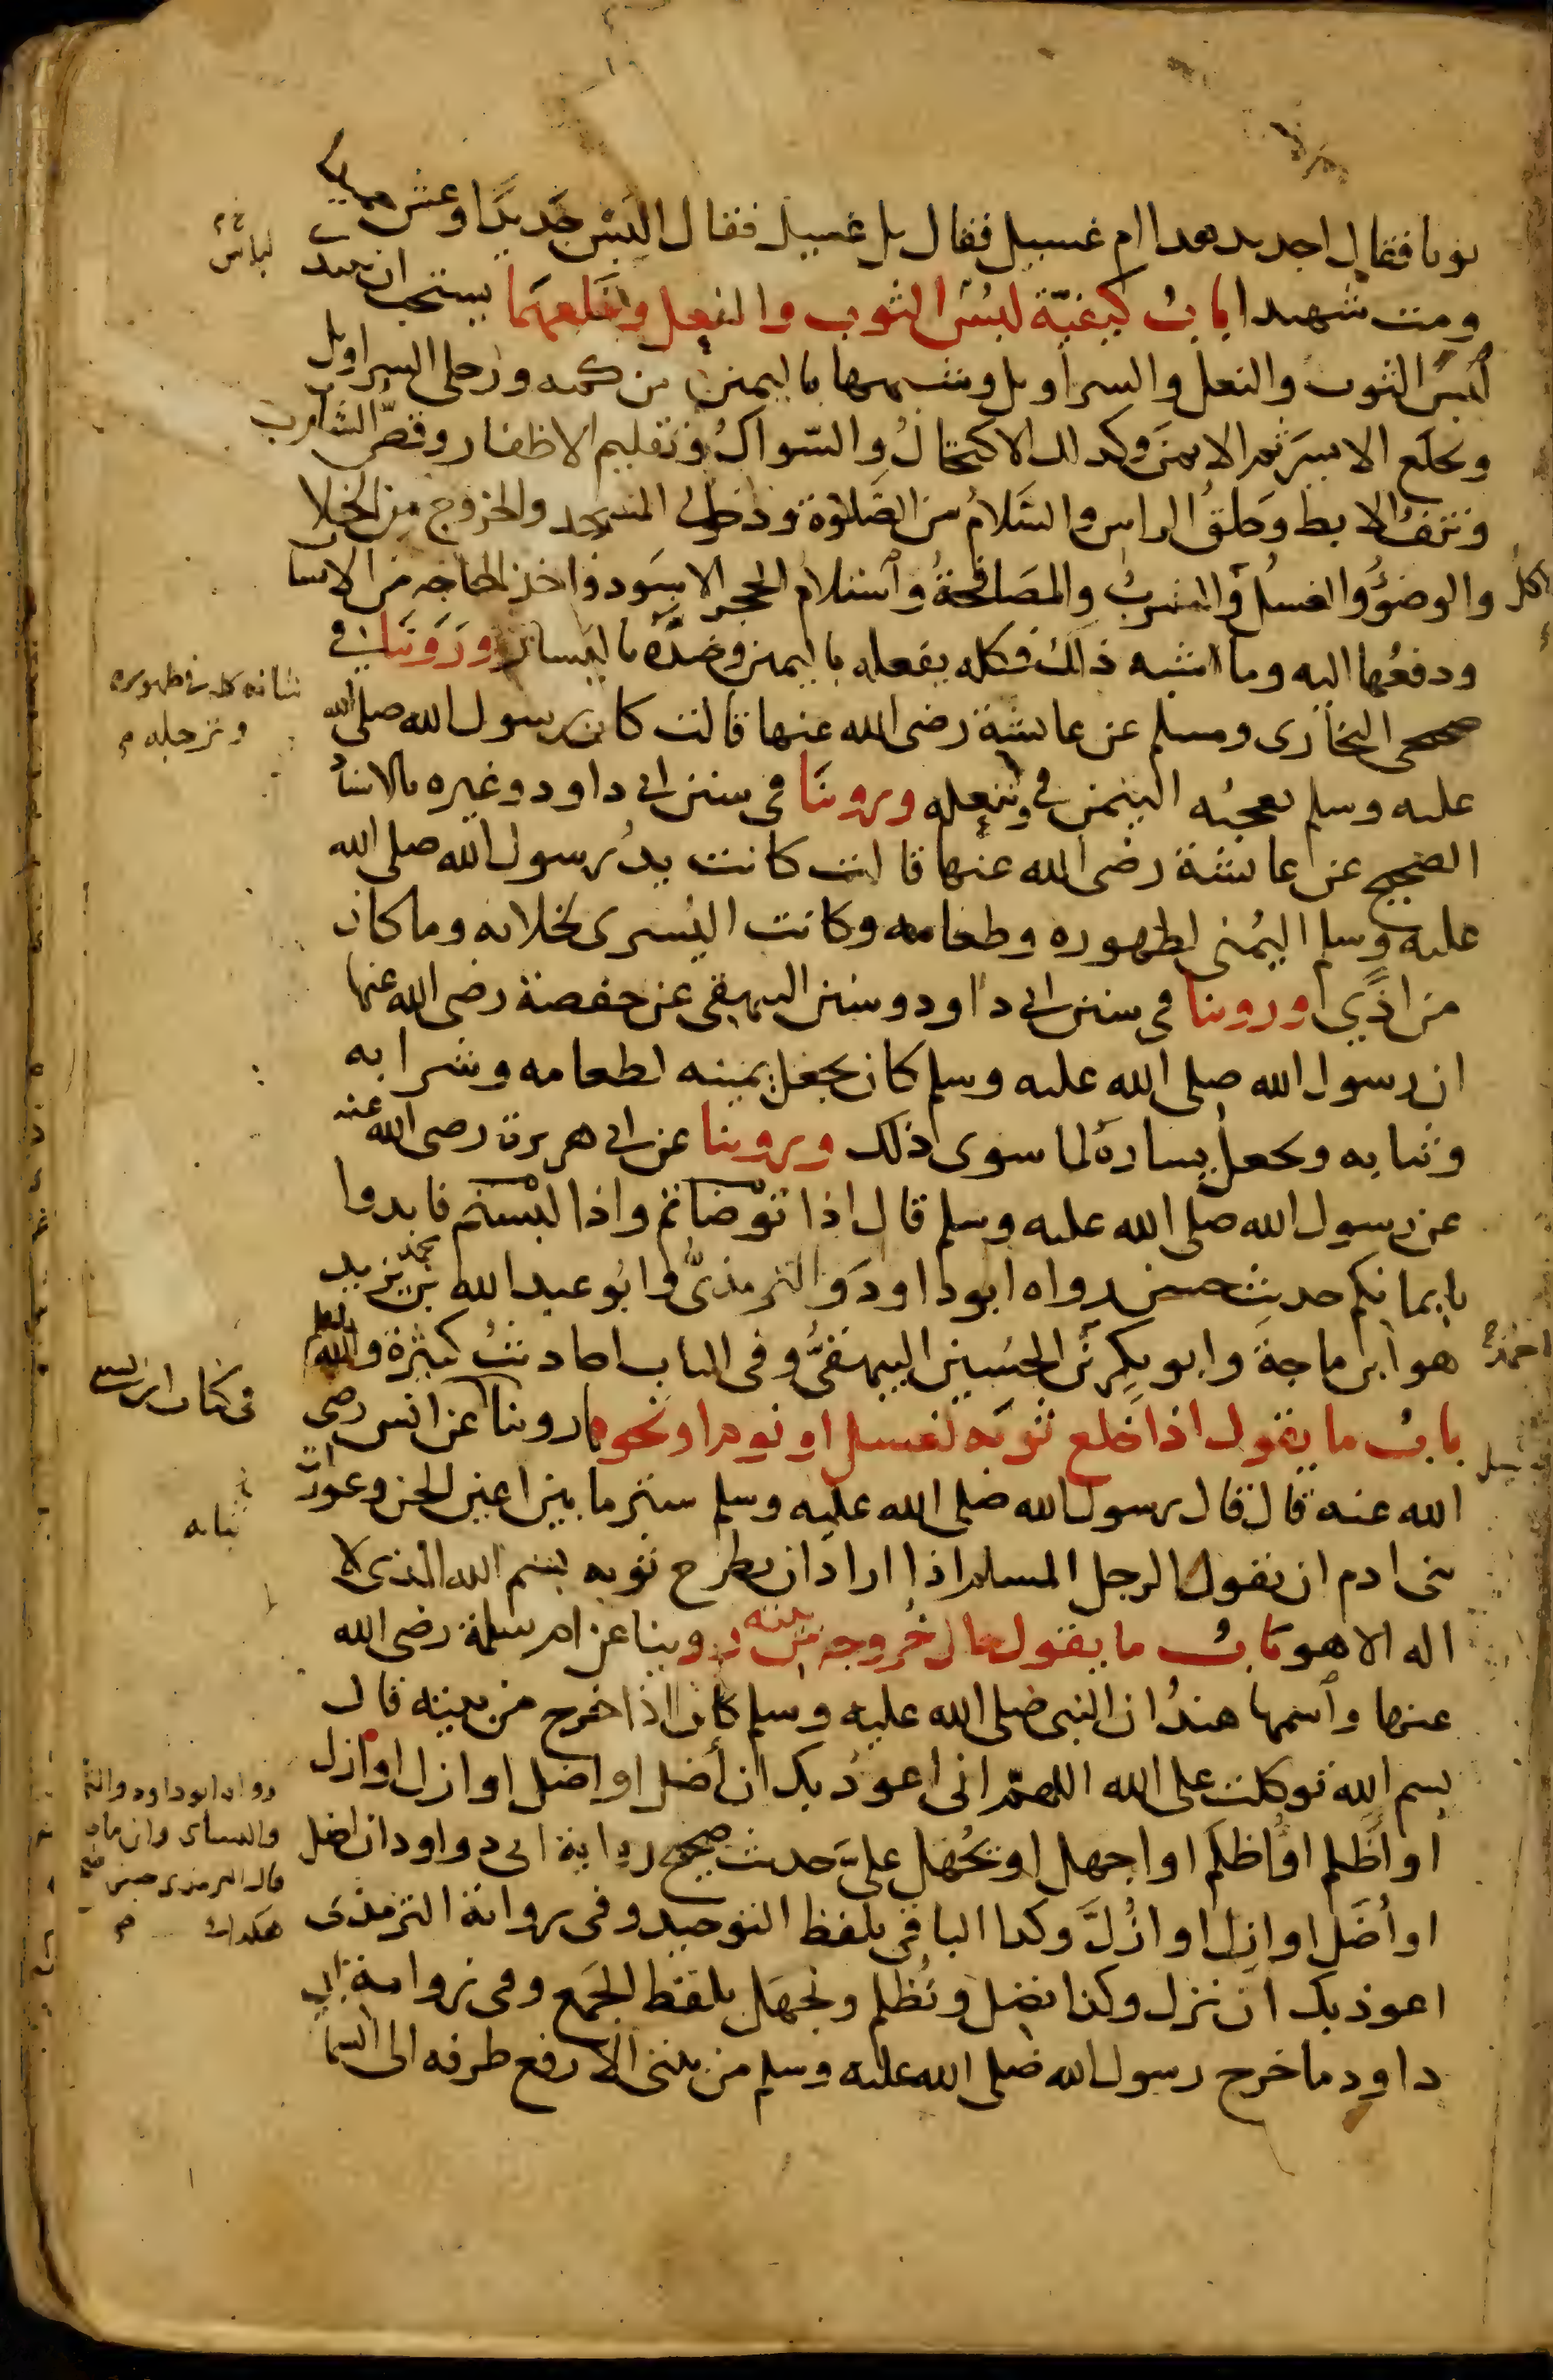 ثوبا فقال اجديد هذا ام غسيل فقال بل غسيل فقال البَسْ جَديدًا وعش حميدا
ومت شهيدا بابُ كيفيّة لبُس الثوب والنعل وخلعهما يستحب ان يبتدئ
لُبسَ الثوب والنعل والسراويل وشبهها باليمين من كميه ورجلي السراويل
ويخلع الايسَرَ ثم الايمنَ وكذلك الاكتحالُ والسّواكُ وتقليم الاظفار وقصّ الشارب
ونتفُ الابط وَحلقُ الراس والسَّلامُ من الصَّلوة ودخولُ المسجد والخروج من الخلا
والوضوُ والغسلُ والشربُ والمصَافحةُ واستلام الحجر الاسود واخذ الحاجه من الانسا
ودفعُها اليه وما اشبه ذلك فكله يفعله باليمين وضدّه باليسار ورَوَينَا في
صحيحي البخاري ومسلم عن عايشة رضي الله عنها قالت كان رسول الله صلى الله
عليه وسلم يعجبُه التيمن في وتنعله وروينَا في سنن ابي داود وغيره بالاسنا
الصحيح عن عايشة رضي الله عنها قالت كانت يدُ رسول الله صلى الله
عليه وسلم اليُمنى لطهوره وطعامه وكانت اليُسرى لخلائه وما كان
من اذًى وروينا في سنن ابي داود وسنن البيهقي عن حفصة رضي الله عنها
ان رسول الله صلى الله عليه وسلم كان يجعل يمينه لطعامه وشرابه
وثيابه ويجعل يسارهُ لما سوى ذلك وروينا عن ابي هريرة رضي الله عنه
عن رسول الله صلى الله عليه وسلم قال اذا توضاتم واذا لبستم فابدوا
بايمانكم حديث حسن رواه ابو داودَ والترمذيُّ وابُو عبد الله محمد بن يزيد
هو ابن ماجةَ وابو بكر بن الحسَين البيهقيُّ وفي الباب احاديثُ كثيرة والله اعلم
بابُ ما يقول اذا خلع ثوبَه لغسل او نوم او نحوه روينا عن انس رضي
الله عنه قال قال رسول الله صلى الله عليه وسلم ستر ما بين اعين الجن وعورات
بني ادم ان يقول الرجل المسلم اذا اراد ان يطرح ثوبه بسم الله الذي لا
اله الا هو بابُ ما يقول حال خُروجه من بيته روينا عن ام سلمة رضي الله
عنها وٱسمها هندُ ان النبي صلى الله عليه وسلم كان اذا خرج من بيته قال
بسم الله توكلت على الله اللهمّ اني اعوذ بك ان أضل او اضل او ازل او ازل
او أَظلم او أُظلَم او اجهل او يُجهل عليَّ حديث صحيح رواية ابي داود ان اضل
او أُضَل او ازِل او ازَلَّ وكذا الباقي بلفظ التوحيد وفي رواية الترمذي
اعوذ بك ان نزل وكذا نضل ونُظلم ونجهَل بلفظ الجَمع وفي رواية ابي
داود ما خرج رسول الله صلى الله عليه وسلم من بيتي الا رفع طرفه الى السما
لباس
اكل
شانه كله في طهوره
وترجله م
احمد
في كتاب ابن السني
ثيابه
رواه ابو داود والتر
والنسائي وابن ماجه
قال الترمذي حسن صحيح
هكذا